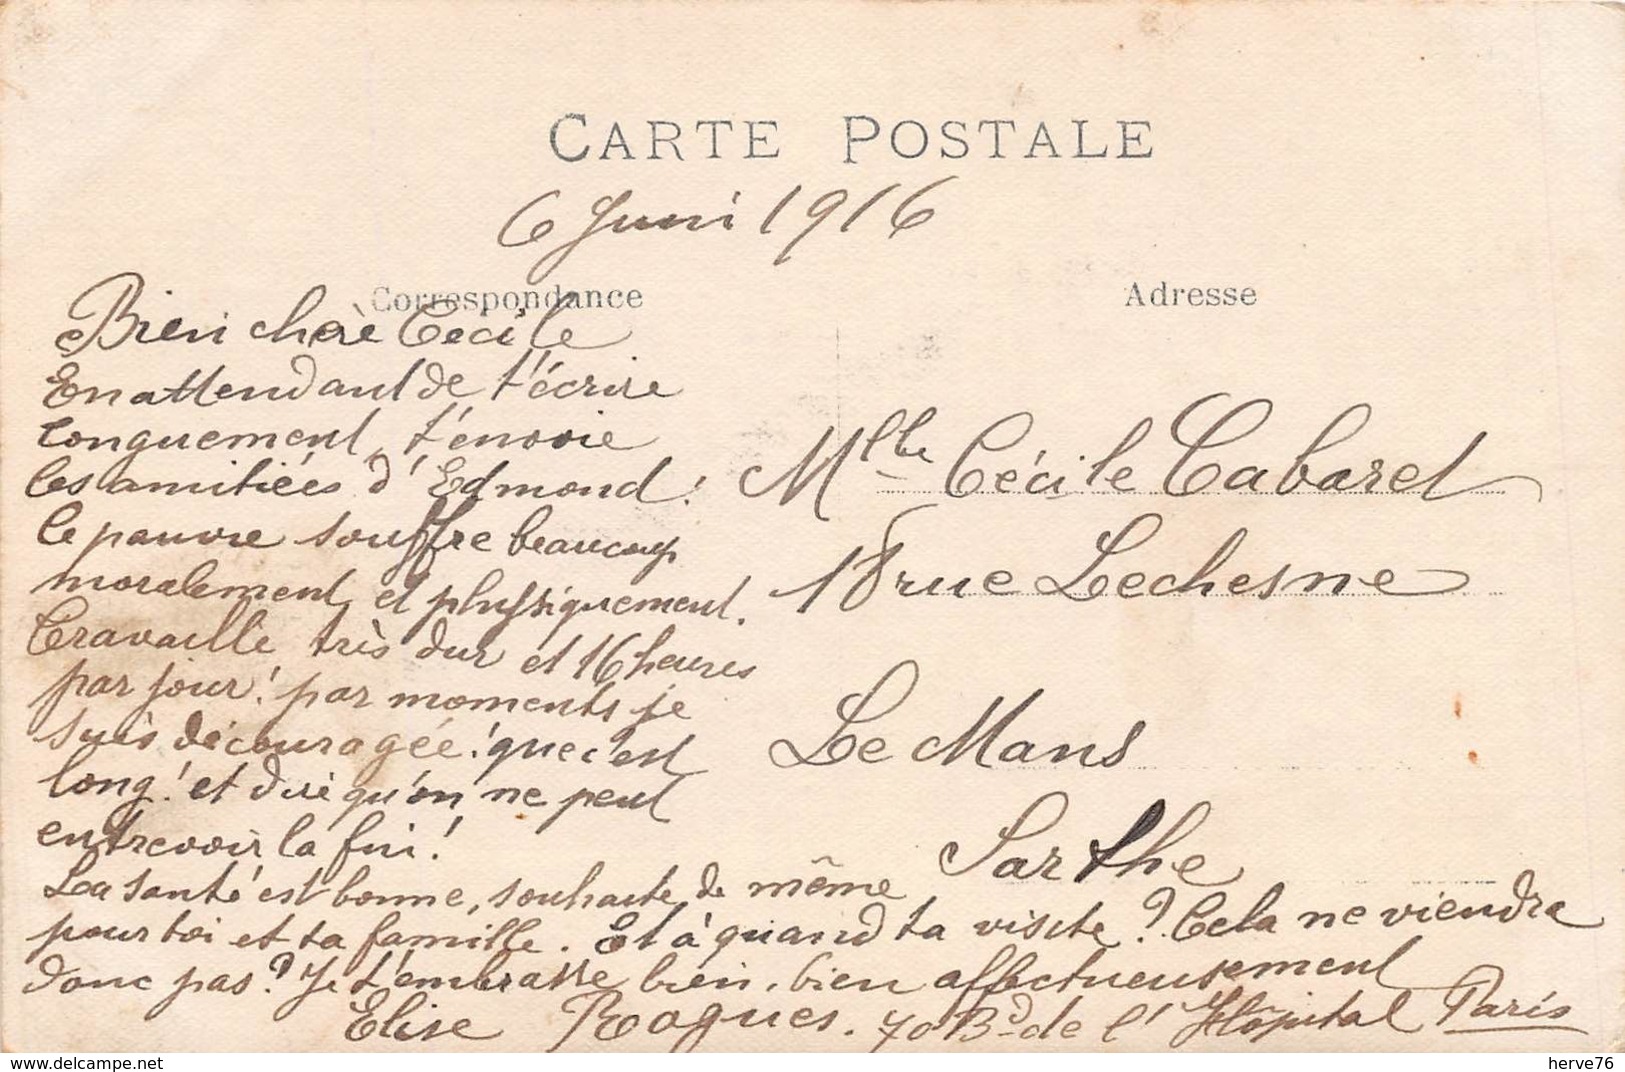 CARTE POSTALE
6 Juni 1916
Correspondance
Adresse
Bien chère Cécile
En attendant de t'écrire
longuement, t'envoie
les amitiées d'Edmond!
le pauvre souffre beaucoup
moralement et physiquement.
Travaille très dur et 16 heures
par jour! par moments je
suis découragée! que c'est
long! et dire qu'on ne peut
entrevoir la fin!
La santé est bonne, souhaite de même
pour toi et ta famille. Et à quand ta visite? Cela ne viendra
donc pas? Je t'embrasse bien, bien affectueusement
Elise Rogues. 70 Bd de l'Hôpital Paris
Mlle Cécile Cabaret
18 rue Lechesne
Le Mans
Sarthe
herve76